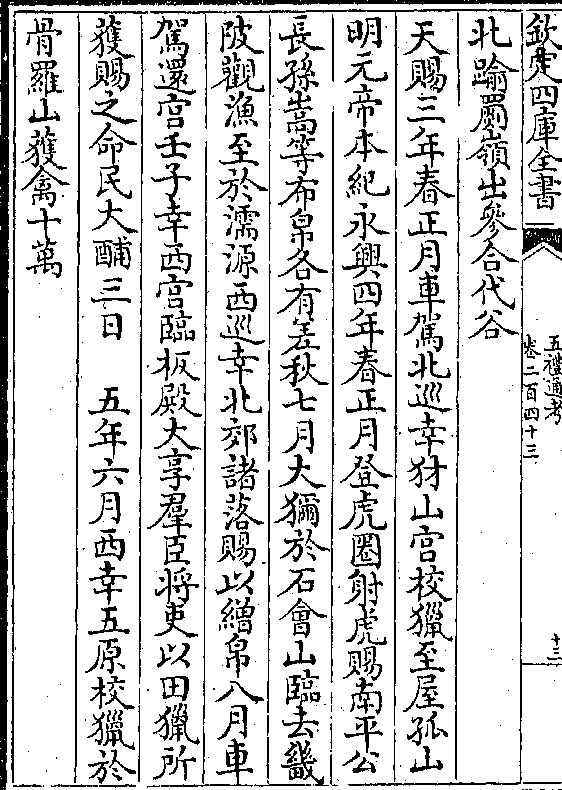 欽定四庫全書
五禮通考
卷二百四十三
十三
北踰罽嶺出參合代谷
天賜三年春正月車駕北巡幸犲山宫校獵至屋孤山
明元帝本紀永興四年春正月登虎圈射虎賜南平公
長孫嵩等布帛各有差秋七月大獮於石會山臨去畿
陂觀漁至於濡源西巡幸北郊諸落賜以繒帛八月車
駕還宫壬子幸西宫臨板殿大享羣臣將吏以田獵所
獲賜之命民大酺三日　五年六月西幸五原校獵於
骨羅山獲禽十萬